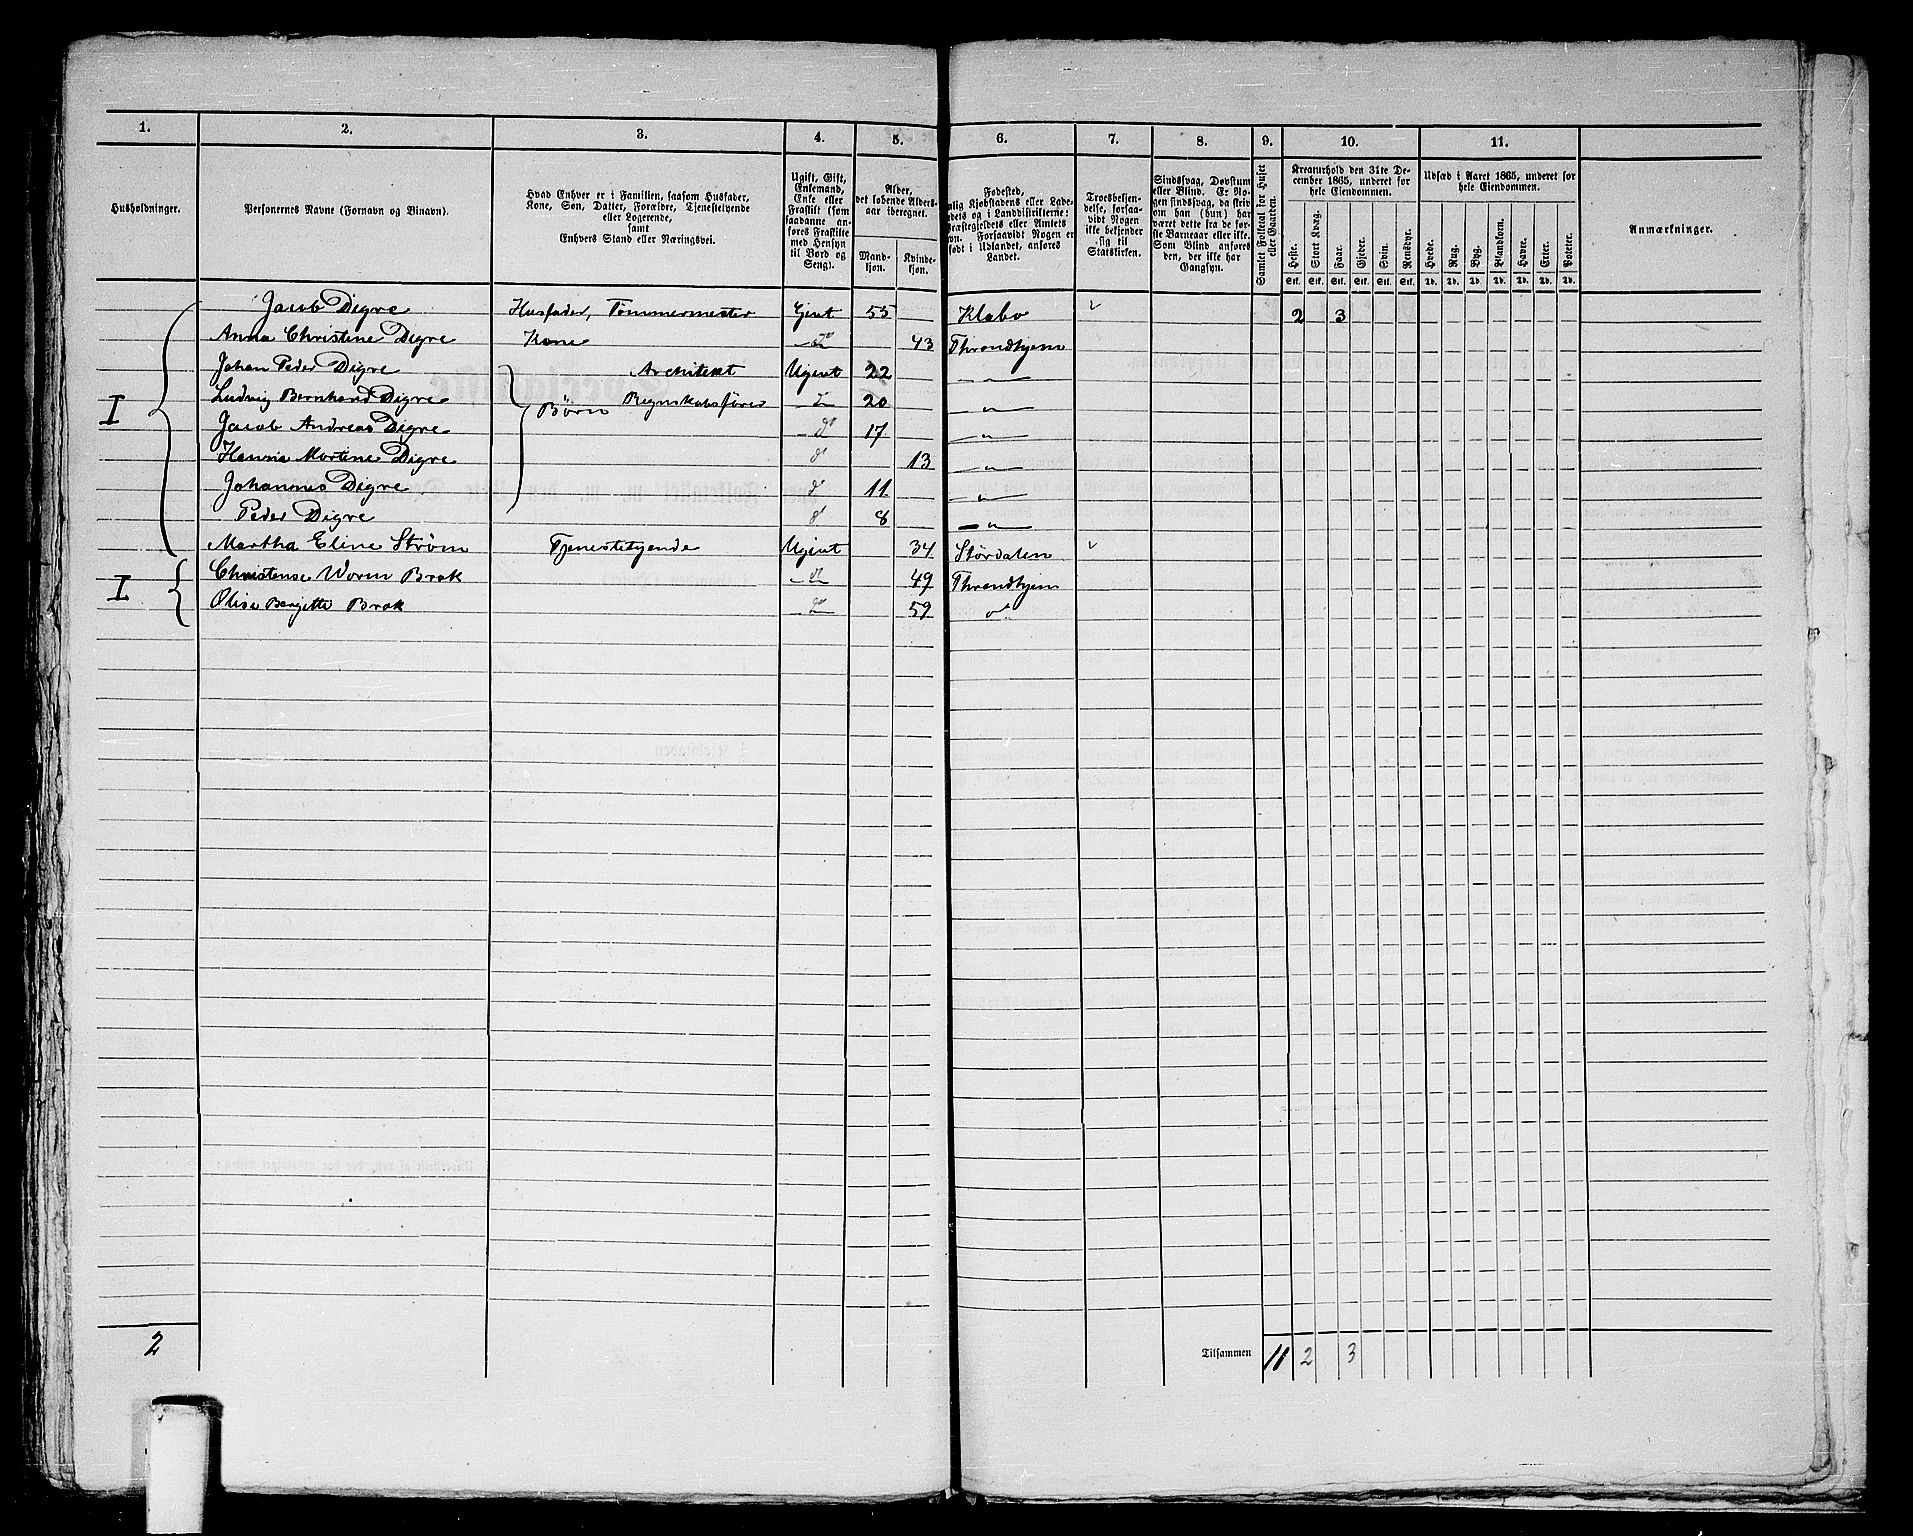 1. 2. 3. 4. 5. 6. 7. 8. 9. 10. 11.
Husholdninger.
Personernes Navne (Fornavn og Vinavn).
Hvad Enhver er i Familien, saasom Husfader,
Kone, Søn, Datter, Forældre, Tjenestetyende
eller Logerende,
samt
Enhvers Stand eller Næringsvei.
Ugift, Gift,
Enkemand,
Enke eller
Fraskilt (som
saadanne an-
føres Fraskilte
med Hensyn
til Bord og
Seng).
Alder,
det løbende Alders-
aar iberegnet.
Mand-
kjøn.
Kvinde-
kjøn.
Fødested,
lig Kjøbstadens eller Lade-
dets og i Landdistrikterne:
præstegjeldets eller Amtets
vn. Forsaavidt Nogen er
født i Udlandet, anføres
Landet.
Troesbekjen-
delse, forsaa-
vidt Nogen
ikke bekjender
sig til
Statskirken.
Sindssvag, Døvstum
eller Blind. Er No-
gen sindssvag, da skriv
om han (hun) har
været dette fra de før-
ste Barneaar eller ikke.
Som Blind anføres
den, der ikke har
Gangsyn.
Samlet Folketal for Huset
eller Gaarden.
Kreaturhold den 31te De-
cember 1865, underet for
hele Eiendommen.
Heste. Stort Kvæg. Faar. Gjeder. Svin. Rensdyr.
Stk. Stk. Stk. Stk. Stk. Stk.
Udsæd i Aaret 1865, underet for
hele Eiendommen.
Hvede. Rug. Byg. Blandkorn. Havre. Erter. Poteter.
Td. Td. Td. Td. Td. Td. Td.
Anmærkninger.
Jacob Digre Husfader, Tømmermester Givt 55 Klæbo 2 3
Anna Christine Digre Kone do 43 Throndhjem
Johan Peder Digre Architekt Ugivt 22 — " —
I Ludvig Bernhard Digre Børn Regnskabsfører do 20 — " —
Jacob Andreas Digre do 17 — " —
Hanna Martine Digre do 13 — " —
Johannes Digre do 11 — " —
Peder Digre do 8 — " —
Martha Eline Strøm Tjenestetyende Ugivt 34 Størdalen
I Christense Worm Brok do 49 Throndhjem
Olise Bergitte Brok do 59 do
2 Tilsammen 11 2 3